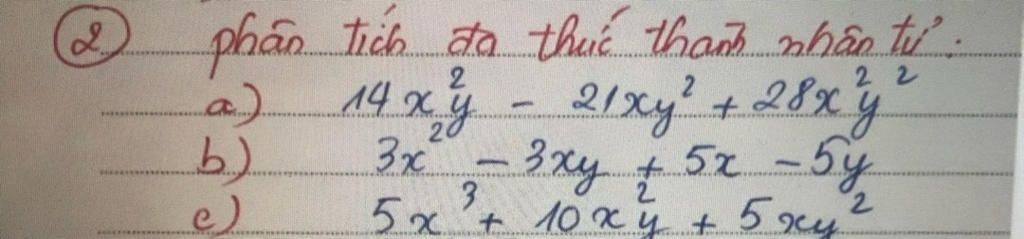 ② phân tích đa thức thành nhân tử.
a) 14x²y - 21xy² + 28x²y²
b) 3x² - 3xy + 5x - 5y
c) 5x³ + 10x²y + 5xy²